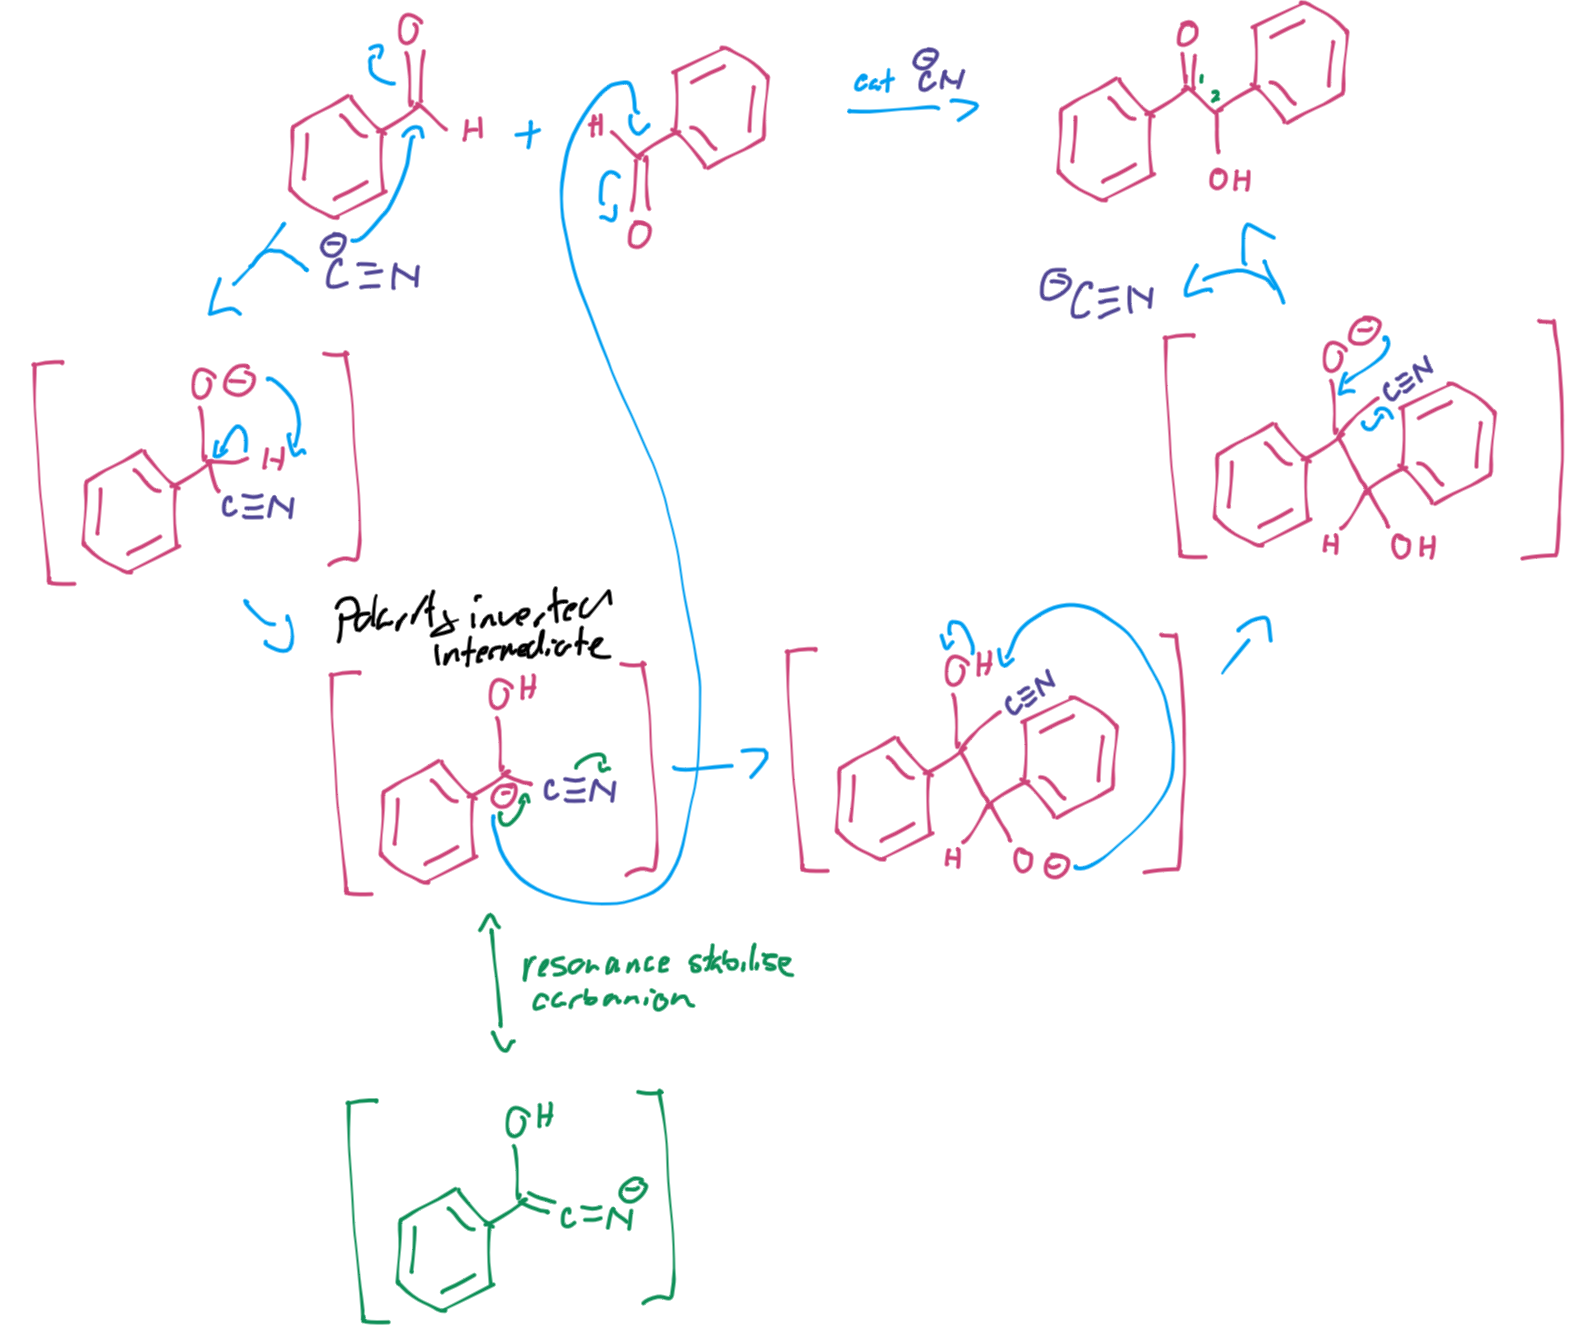 O
H
+
H
O
cat ⊖CN
O
1
2
OH
⊖
C≡N
⊖C≡N
O⊖
H
C≡N
O⊖
C≡N
H
OH
Polarity inverted
Intermediate
OH
⊖
C≡N
OH
C≡N
H
O⊖
resonance stabilise
carbanion
OH
C=N⊖